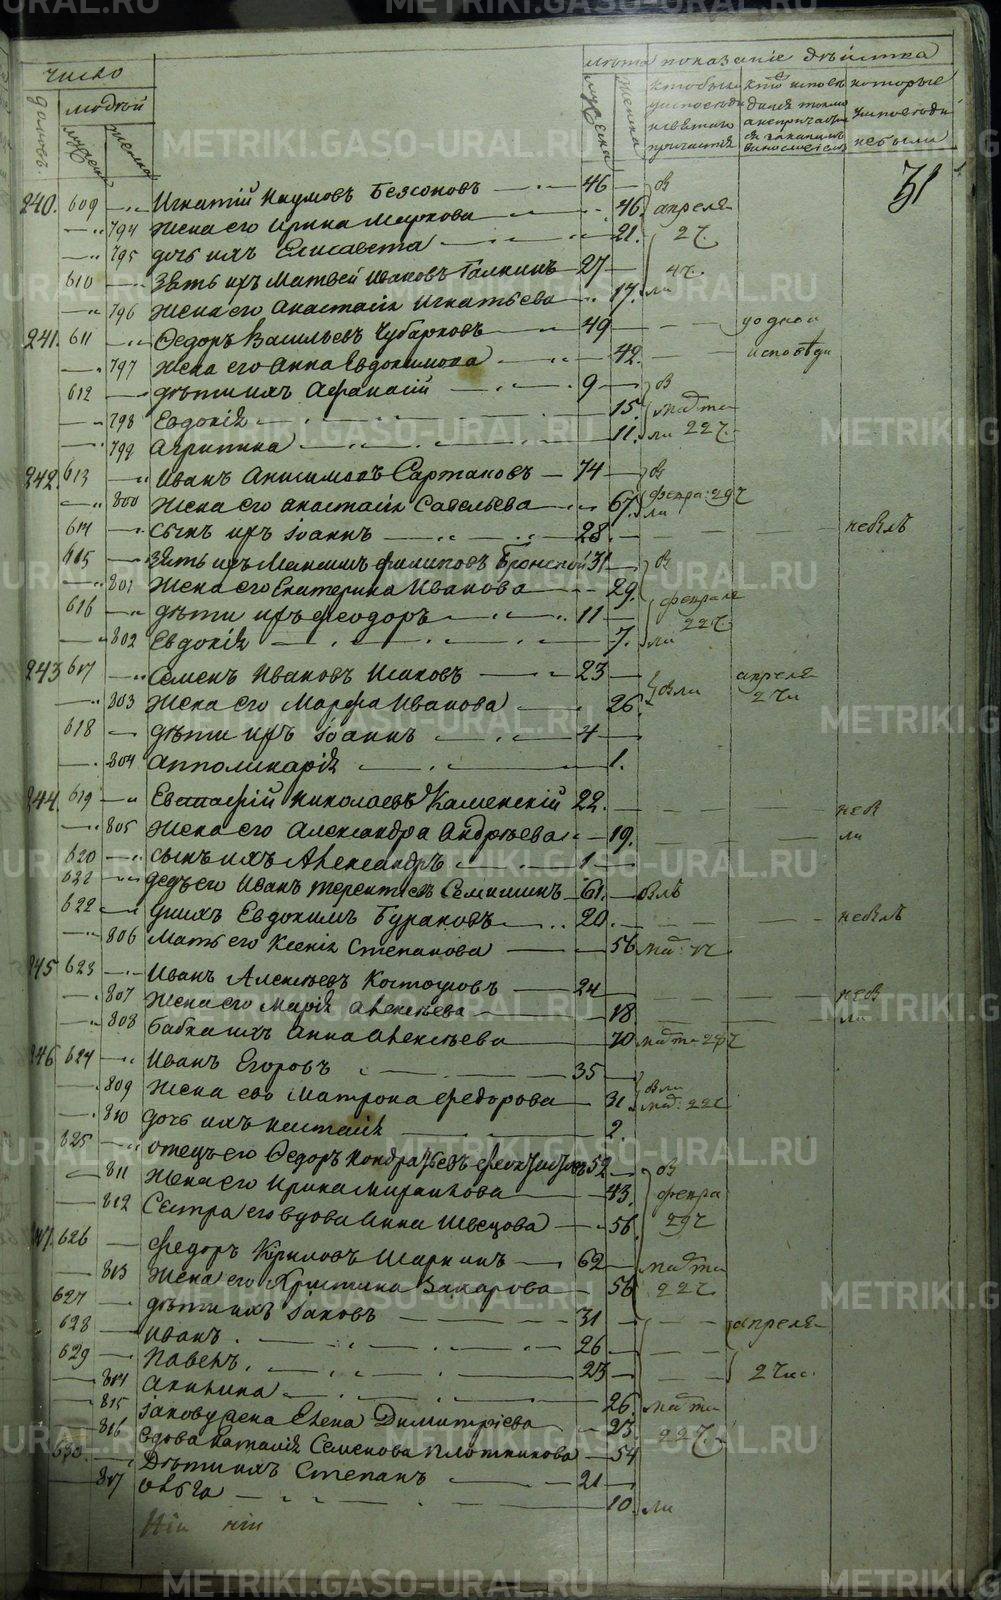 METRIKI.GASO-URAL.RU
число
лѣта показаніе дѣйства
домовъ
людей
мужска
женска
мужска
женска
кто были у исповѣди и святаго причастія
которые у исповѣди небыли
31
240. 609 Игнатій Наумовъ Безсоновъ 46 бы
794 жена его Ирина Маркова 46. апреля
795 дочь ихъ Елисавета 21. 2 ч.
610 Зять ихъ Матвей Ивановъ Галкинъ 27 4 ч.
796 жена его Анастасія Игнатьева 17. ли
241. 611 Ѳедоръ Васильевъ Чубарковъ 49 у одной
797 жена его Анна Евдокимова 42. исповѣди
612 дѣти ихъ Афанасій 9 бы
798 Евдокія 15. марта
799 Агрипина 11. ли 22 ч.
242. 613 Иванъ Анисимовъ Сартаковъ 74 бы
800 жена его Анастасія Савельева 67. февра: 29 ч ли
614 сынъ ихъ Іоаннъ 28. небылъ
615 зять ихъ Максимъ Филиповъ Бронской 31 бы
801 жена его Екатерина Иванова 29.
616 дѣти ихъ Феодоръ 11 февраля
802 Евдокія 7. 22 ч. ли
243 617 Семенъ Ивановъ Исаковъ 23 апреля
803 жена его Марфа Иванова 26. были 2 чи
618 дѣти ихъ Іоаннъ 4
804 Апполинарія 1.
244. 619 Николаевъ Каменскій 22. небы
805 жена его Александра Андрѣева 19. ли
620 сынъ ихъ Александръ 1
621 дедъ его Иванъ Терентіевъ Семишинъ 61. былъ
622 Евдокимъ Бураковъ 20. небылъ
806 мать его Ксенія Степанова 56
245 623 Иванъ Алексѣевъ Костоусовъ 24 небы
807 жена его Марія Алексѣева 18 ли
808 бабка ихъ Анна Алексѣева 70 марта 29 ч
246 624 Иванъ Егоровъ 35
809 жена его Матрона Федорова 31 были мар: 22 ч
810 дочь ихъ Наталія 2.
625 отецъ его Ѳедоръ Кондратьевъ 52 бы
811 жена его Ирина 43. февра
812 Сестра его вдова Анна Швецова 56. 29 ч
247. 626 Федоръ Кириловъ Шаркинъ 62 марта
813 жена его Христина Захарова 56 22 ч
627 дѣти ихъ Іаковъ 31 апреля
628 Иванъ. 26
629 Павелъ. 23 2 чис.
814 Акилина 26. марта
815 Іакову жена Елена Димитріева 23. 22 ч.
816 вдова Наталія Семенова Плотникова 54
630. дѣти ихъ Степанъ 21
817 Ольга 10. ли